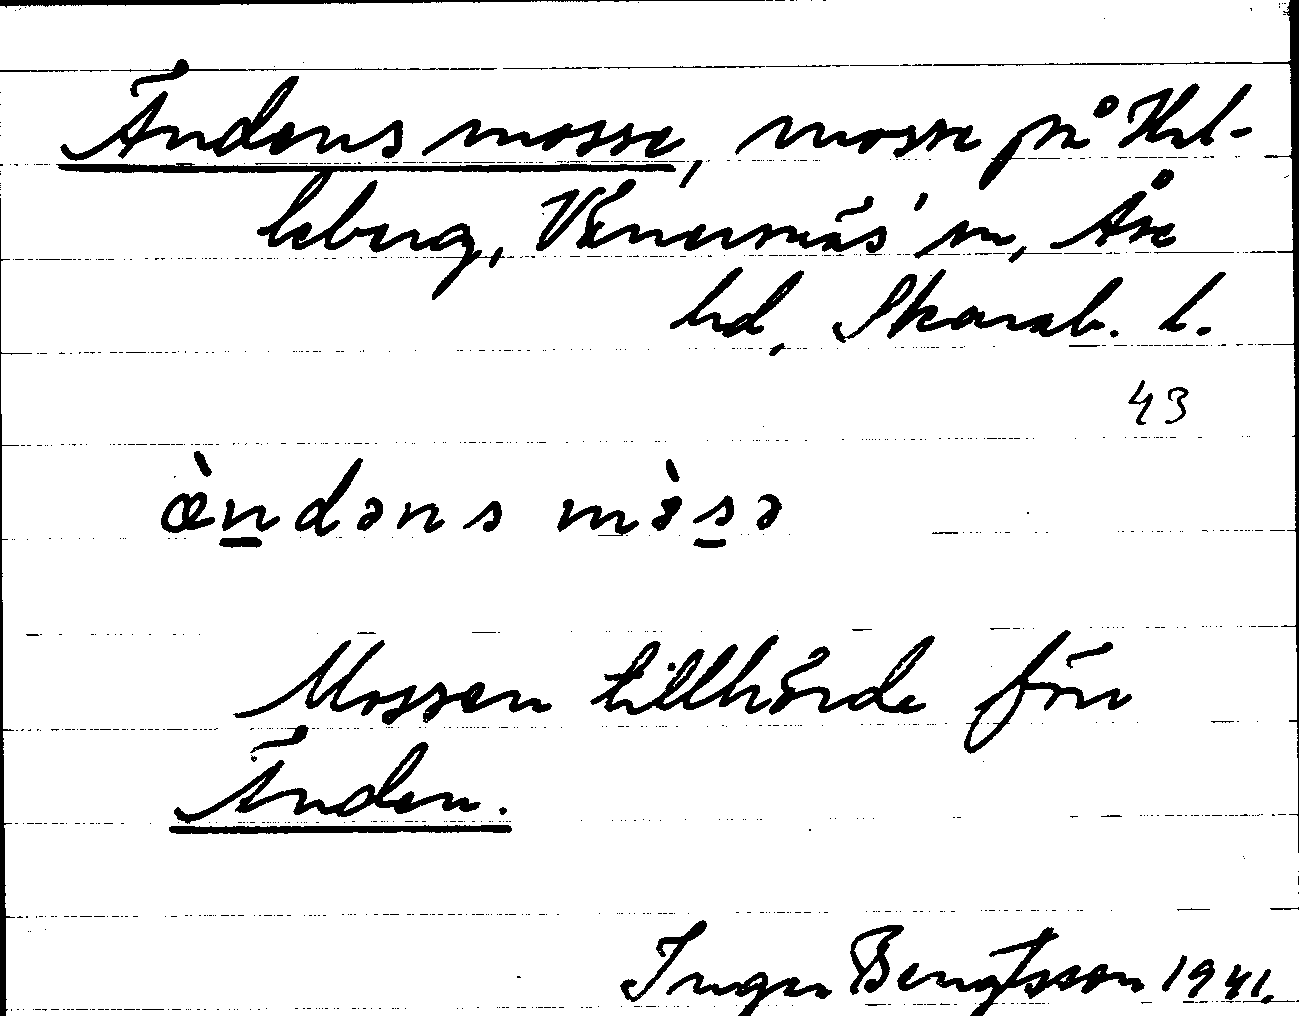 Ändens mosse, mosse på Hal-
leberg, Vänersnäs' sn, Åse
hd, Skarab. l.
43
æ̀ndəns mòsə
Mossen tillhörde förr
Änden.
Inger Bengtsson 1941.